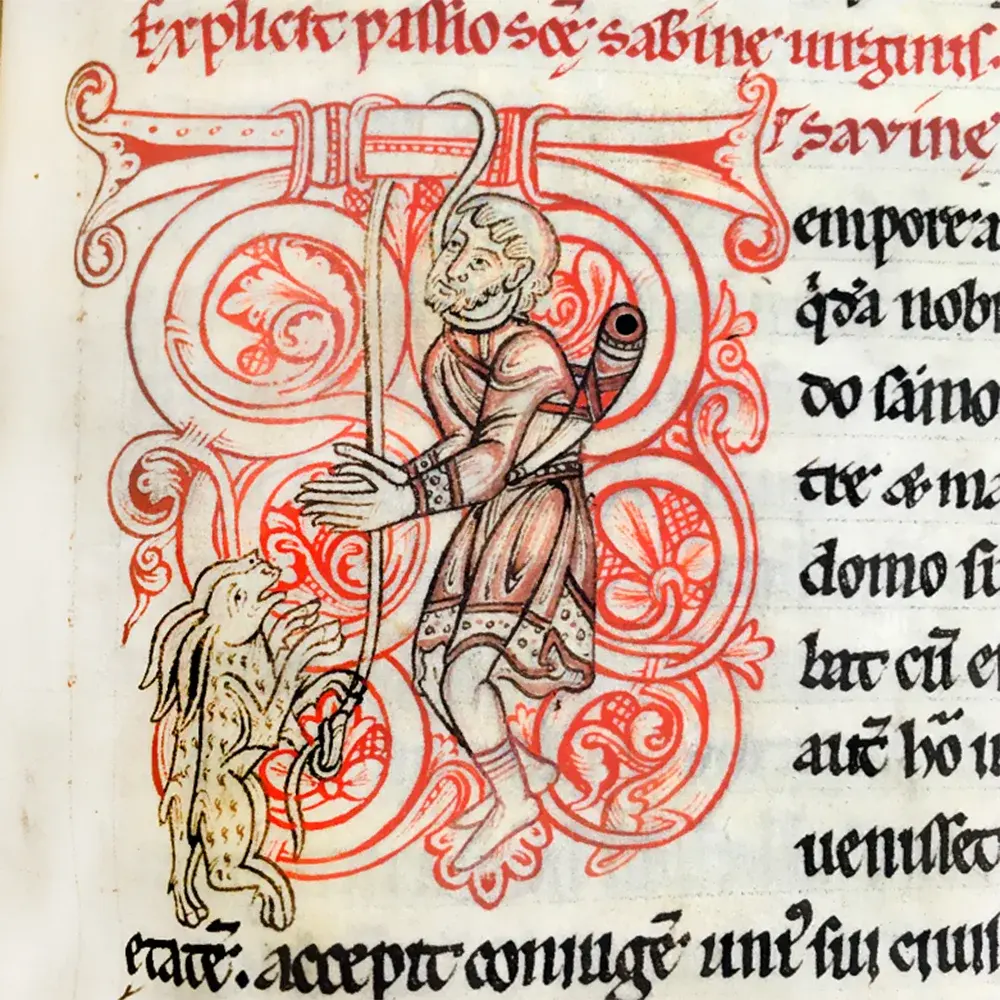 Explicit passio scē sabinę uirginis.
savinę
Tempore a
nob
do
tre & ma
domo su
bat cū e
autē hō
uenisset
etatē. accepit coniugē uniꝰ sui ciui